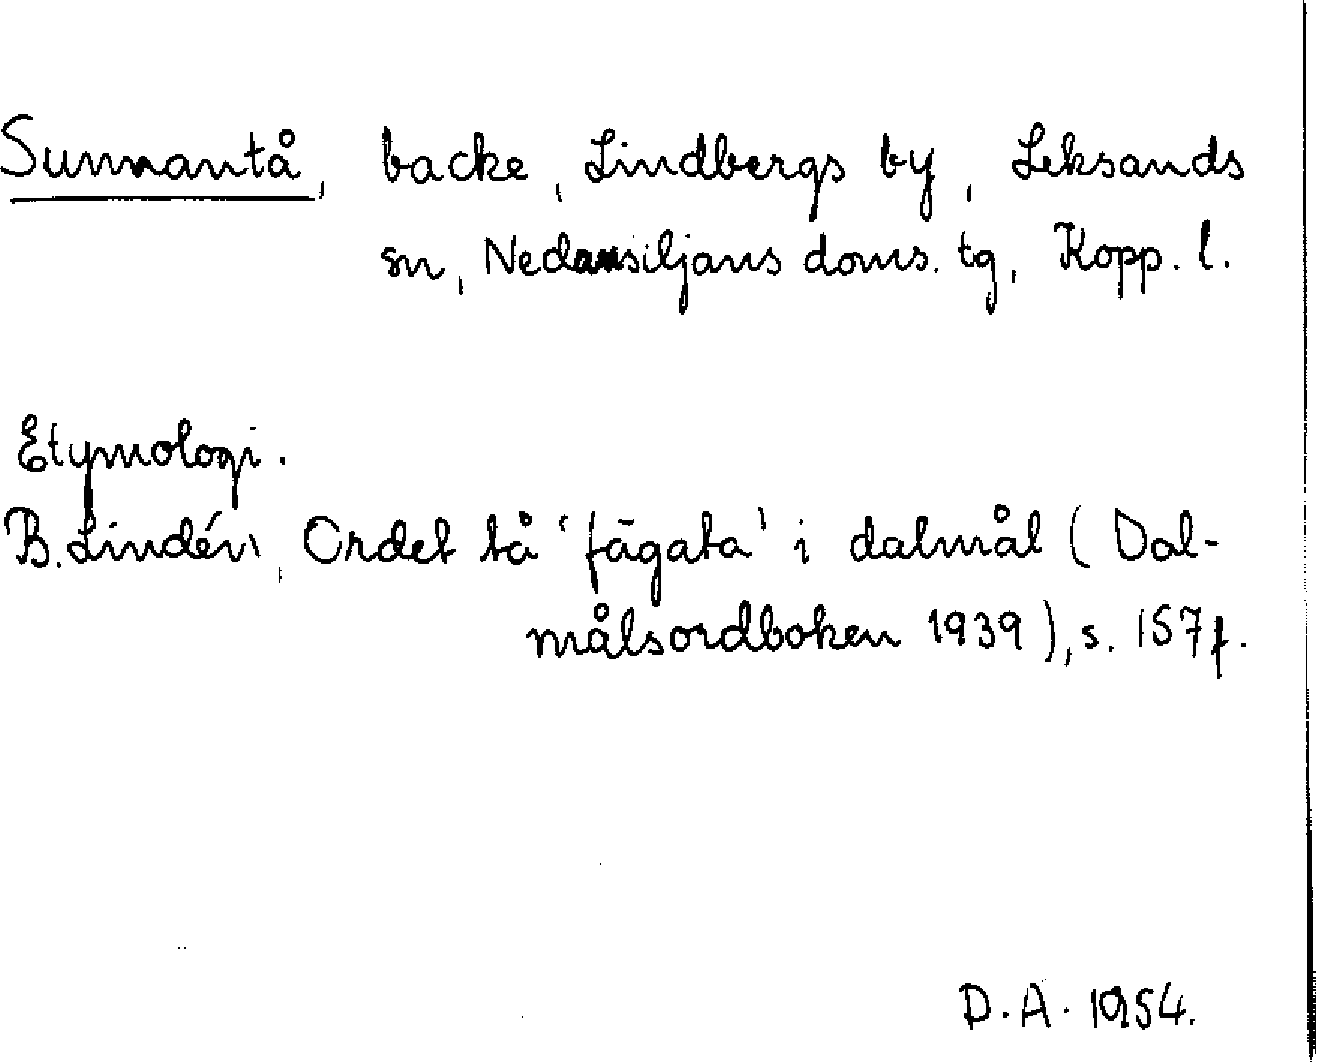 Sunnantå, backe, Lindbergs by, Leksands
sn, Nedansiljans doms. tg, Kopp. l.
Etymologi.
B. Lindén, Ordet tå 'fägata' i dalmål (Dal-
målsordboken 1939), s. 157 f.
D. A. 1954.